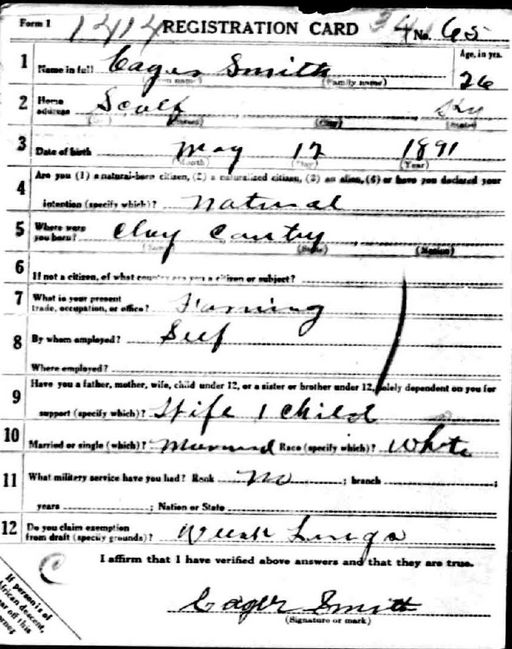 Form 1 1414 REGISTRATION CARD No. 65
1 Name in full Cager Smith Age, in yrs.
(Family name) 26
2 Home address Scalf Ky
3 Date of birth May 12 1891
(Month) (Day) (Year)
4 Are you (1) a natural-born citizen, (2) a naturalized citizen, (3) an alien, (4) or have you declared your
intention (specify which)? Natural
5 Where were you born? Clay Countty
(State) (Nation)
6 If not a citizen, of what country are you a citizen or subject?
7 What is your present trade, occupation, or office? Farming
8 By whom employed? Self
Where employed?
9 Have you a father, mother, wife, child under 12, or a sister or brother under 12, solely dependent on you for
support (specify which)? Wife 1 Child
10 Married or single (which)? Married Race (specify which)? White
11 What military service have you had? Rank No ; branch ;
years ; Nation or State
12 Do you claim exemption from draft (specify grounds)? Weak Lungs
I affirm that I have verified above answers and that they are true.
C
Cager Smith
(Signature or mark)
If person is of
African descent,